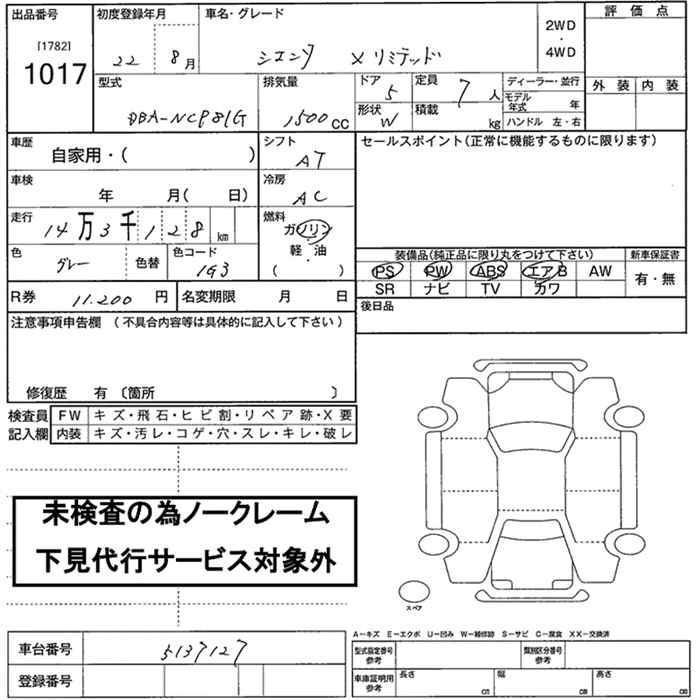 出品番号 初度登録年月 車名・グレード 2WD ・ 4WD 評価点
[1782]
1017 22 8月 シエンタ Xリミテッド
型式 排気量 ドア 定員 ディーラー・並行 外装 内装
5 7人 モデル年式 年
DBA-NCP81G 1500CC 形状 W 積載 kg ハンドル 左・右
車歴 自家用・( ) シフト AT セールスポイント(正常に機能するものに限ります)
車検 年 月( 日) 冷房 AC
走行 14万3千128km 燃料 ガソリン
軽・油
( ・ )
色 グレー 色替 色コード 1G3
装備品(純正品に限り丸をつけて下さい) 新車保証書
PS PW ABS エアB AW 有・無
SR ナビ TV カワ
R券 11.200円 名変期限 月 日 後日品
注意事項申告欄 (不具合内容等は具体的に記入して下さい)
修復歴 有 〔箇所 〕
検査員 FW キズ・飛石・ヒビ割・リペア跡・X要
記入欄 内装 キズ・汚レ・コゲ・穴・スレ・キレ・破レ
未検査の為ノークレーム
下見代行サービス対象外
スペア
A-キズ E-エクボ U-凹み W-補修跡 S-サビ C-腐食 XX-交換済
車台番号 5137127 型式指定番号 参考 類別区分番号 参考
登録番号 車庫証明用 参考 長さ cm 幅 cm 高さ cm